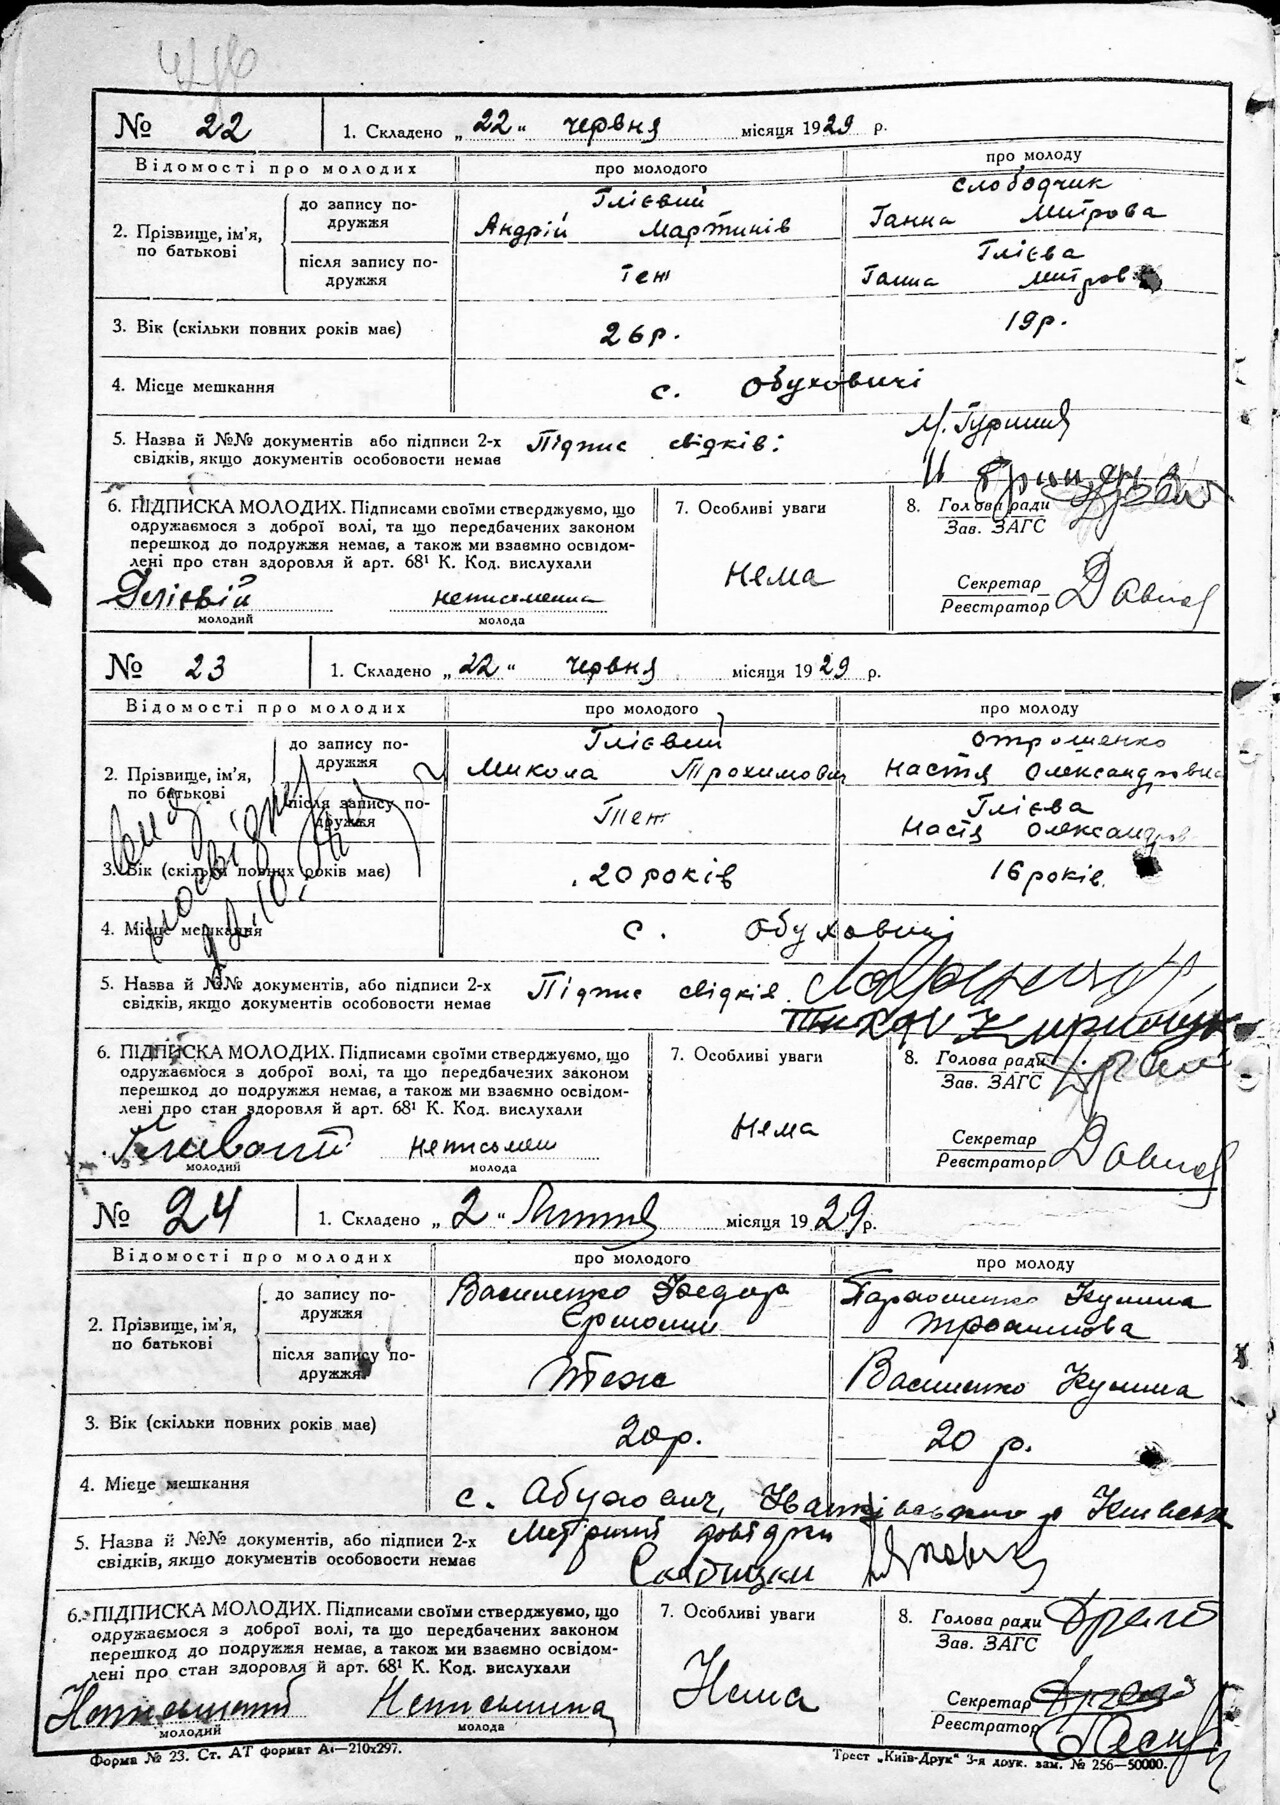 № 22 1. Складено „22“ червня місяця 1929 р.
Відомості про молодих про молодого про молоду
2. Прізвище, ім'я, по батькові
до запису подружжя
Глієвий
Андрій Мартинів
Слободчик
Ганна Митрова
після запису подружжя
Теж
Глієва
Ганна Митров
3. Вік (скільки повних років має) 26 р. 19 р.
4. Місце мешкання с. Обуховичі
5. Назва й №№ документів або підписи 2-х
свідків, якщо документів особовости немає
Підпис свідків:
6. ПІДПИСКА МОЛОДИХ. Підписами своїми стверджуємо, що
одружаємося з доброї волі, та що передбачених законом
перешкод до подружжя немає, а також ми взаємно освідом-
лені про стан здоровля й арт. 68¹ К. Код. вислухали
Глієвий неписьменна
молодий молода
7. Особливі уваги
Нема
8. Голова ради
Зав. ЗАГС
Секретар
Реєстратор
№ 23 1. Складено „22“ червня місяця 1929 р.
Відомості про молодих про молодого про молоду
2. Прізвище, ім'я,
по батькові
до запису по-
дружжя
Глієвий
Микола Трохимович
Отрошенко
Настя Олександровна
після запису по-
дружжя
Теж
Глієва
Настя Олександров
3. Вік (скільки повних років має) 20 років 16 років
4. Місце мешкання с. Обуховичі
5. Назва й №№ документів, або підписи 2-х
свідків, якщо документів особовости немає
Підпис свідків
6. ПІДПИСКА МОЛОДИХ. Підписами своїми стверджуємо, що
одружаємося з доброї волі, та що передбачених законом
перешкод до подружжя немає, а також ми взаємно освідом-
лені про стан здоровля й арт. 68¹ К. Код. вислухали
неписьмен
молодий молода
7. Особливі уваги
Нема
8. Голова ради
Зав. ЗАГС
Секретар
Реєстратор
№ 24 1. Складено „2“ Липня місяця 1929 р.
Відомості про молодих про молодого про молоду
2. Прізвище, ім'я,
по батькові
до запису по-
дружжя
Василенко Федор
Параска
після запису по-
дружжя
Теж
Василенко
3. Вік (скільки повних років має) 20 р. 20 р.
4. Місце мешкання с. Абухович,
5. Назва й №№ документів, або підписи 2-х
свідків, якщо документів особовости немає
6. ПІДПИСКА МОЛОДИХ. Підписами своїми стверджуємо, що
одружаємося з доброї волі, та що передбачених законом
перешкод до подружжя немає, а також ми взаємно освідом-
лені про стан здоровля й арт. 68¹ К. Код. вислухали
молодий молода
7. Особливі уваги
Нема
8. Голова ради
Зав. ЗАГС
Секретар
Реєстратор
Форма № 23. Ст. АТ формат А₄—210x297.
Трест „Київ-Друк“ 3-я друк. зам. № 256—50000.